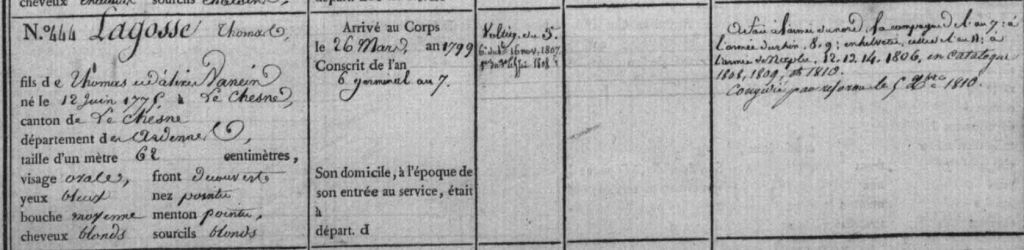 N.º 444 Lagosse Thomas,
fils de Thomas et d'
né le 12 Juin 177 à Le Chesne,
canton de Le Chesne
département des Ardennes,
taille d'un mètre 62 centimètres,
visage ovale, front découvert
yeux bleus nez pointu
bouche moyenne menton pointu,
cheveux blonds sourcils blonds
Arrivé au Corps
le 26 Mars an 1799
Conscrit de l'an
6 germinal an 7.
Son domicile, à l'époque de
son entrée au service, était
à
départ. d
Voltig. du 5.
6. du 16 nov. 1807
1808
a fait à l'armée du nord, la campagne de l'an 7: à
l'armée du rhin, 8, 9; en helvétie, celles
l'armée de Naples, 12. 13. 14. 1806, en Catalogne
1808, 1809, et 1810.
Congédié par réforme le 5 Xbre 1810.